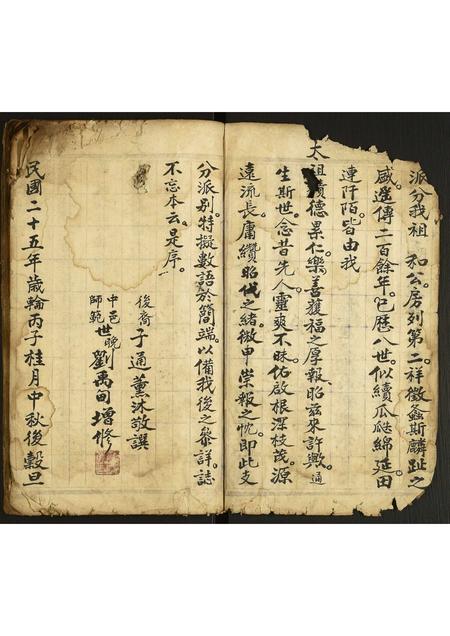 派分我祖 和公房列第二祥徵螽斯麟趾之
盛遞傳二百餘年已歷八世似續瓜瓞綿延田
連阡陌皆由我
太祖積德累仁樂善獲福之厚報昭茲來許歟通
生斯世念昔先人靈爽不昧佑啟根深枝茂源
遠流長庸纘昭代之緒徵申崇報之忱即此支
分派別特擬數語於簡端以備我後之參詳誌
不忘本云是序
後裔子通薰沐敬譔
中邑師範世晚劉禹甸增修
民國二十五年歲輪丙子桂月中秋後穀旦